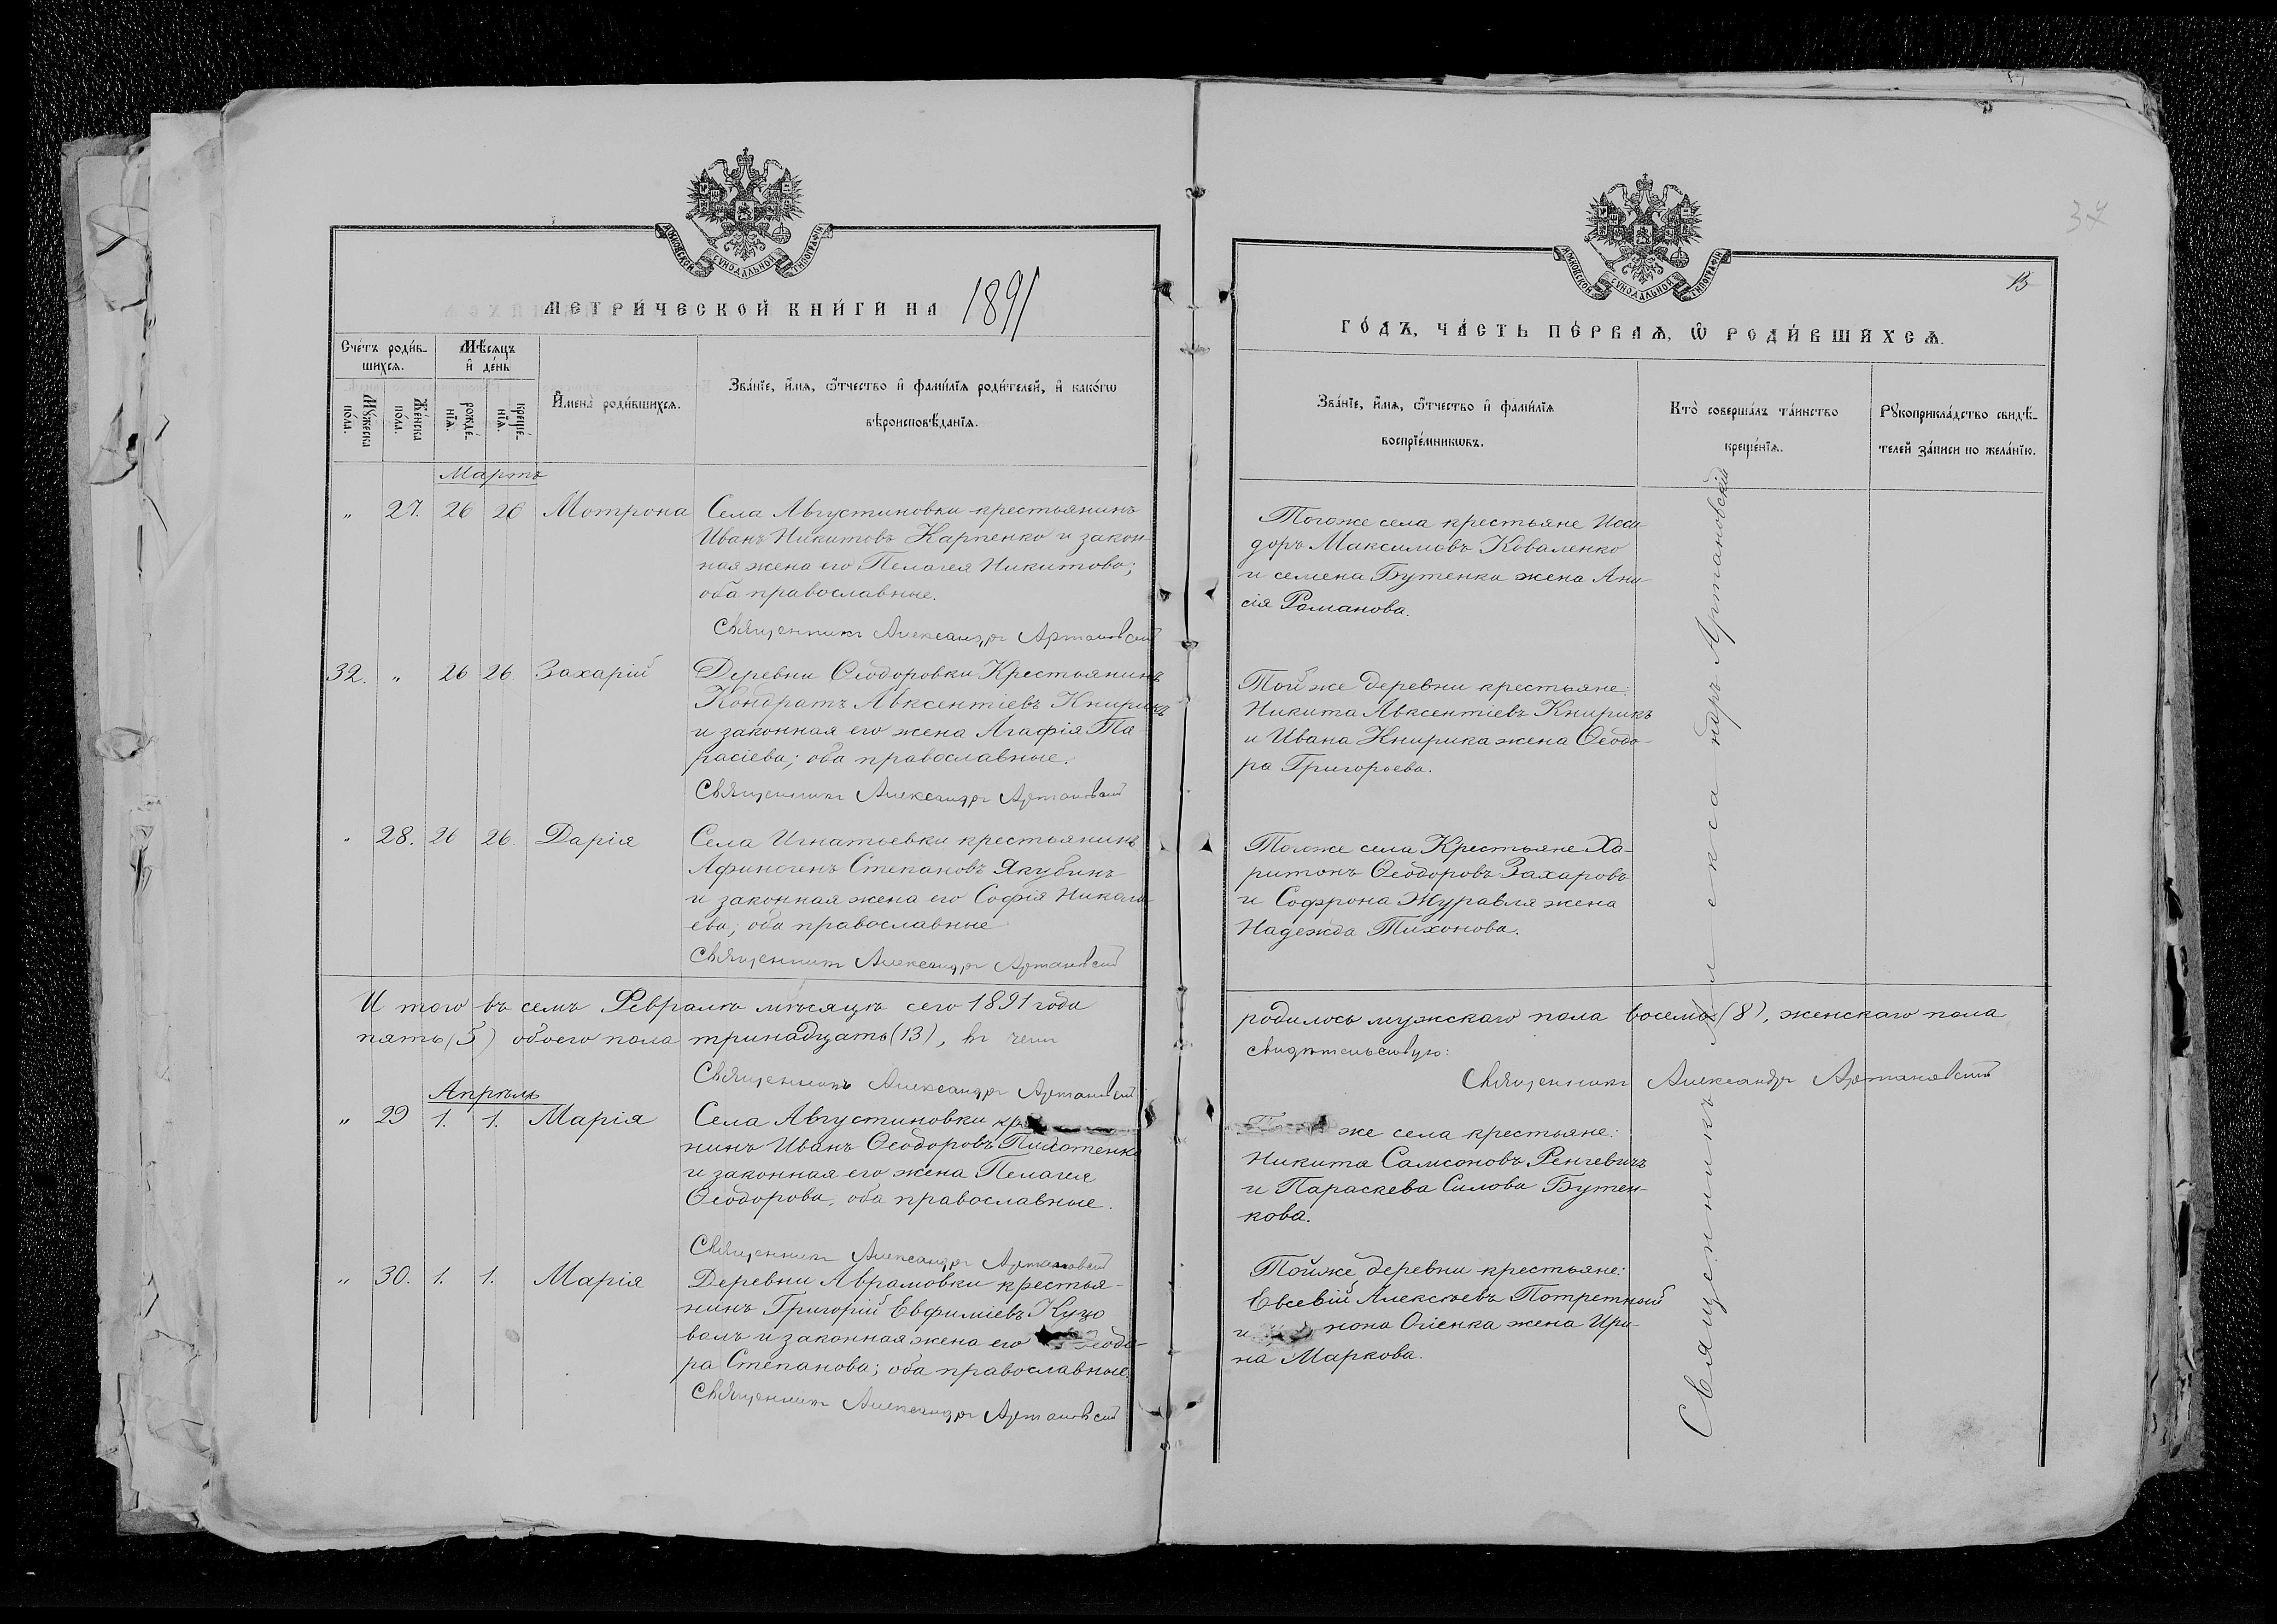 МОСКОВСКОЙ СѴНОДАЛЬНОЙ ТИПОГРАФІИ
МЕТРИ́ЧЕСКОЙ КНИ́ГИ НА 1891
Сче́тъ роди́в-
шихсѧ.
Мꙋ́жеска по́ла.
Же́нска по́ла.
Мѣ́сѧцъ и҆ де́нь
рожде́-
нїѧ.
креще́-
нїѧ.
И҆мена̀ роди́вшихсѧ.
Зва́нїе, и҆́мѧ, ѻ҆́тчество и҆ фами́лїѧ роди́телей, и҆ како́гѡ
вѣроисповѣ́данїѧ.
Мартъ
„ 27. 26 26 Мотрона Села Августиновки крестьянинъ
Иванъ Никитовъ Карпенко и закон-
ная жена его Пелагея Никитова;
оба православные.
Священникъ Александръ Артановскій
32. „ 26 26 Захарій Деревни Ѳеодоровки Крестьянинъ
Кондратъ Авксентіевъ Книрикъ
и законная его жена Агафія Та-
расіева; оба православные.
Священникъ Александръ Артановскій
„ 28. 26 26. Дарія Села Игнатьевки крестьянинъ
Афиногенъ Степановъ Якубинъ
и законная жена его Софія Никола-
ева; оба православные
Священникъ Александръ Артановскій
И того въ семъ Февралѣ мѣсяцѣ сего 1891 года
пять (5) обоего пола тринадцать (13), въ чемъ
Священникъ Александръ Артановскій
Апрѣль
„ 29 1. 1. Марія Села Августиновки
нинъ Иванъ Ѳеодоровъ Пилотенко
и законная его жена Пелагея
Ѳеодорова, оба православные.
Священникъ Александръ Артановскій
„ 30. 1. 1. Марія Деревни Аврамовки крестья-
нинъ Григорій Евфиміевъ Куцо
валъ и законная жена его Ѳеодо-
ра Степанова; оба православные.
Священникъ Александръ Артановскій
37
МОСКОВСКОЙ СѴНОДАЛЬНОЙ ТИПОГРАФІИ
13
ГО́ДЪ, ЧА́СТЬ ПЕ́РВАѦ, Ѡ҆ РОДИ́ВШИХСѦ.
Зва́нїе, и҆́мѧ, ѻ҆́тчество и҆ фами́лїѧ
воспрїе́мникѡвъ.
Кто̀ соверша́лъ та́инство
креще́нїѧ.
Рꙋкоприкла́дство свидѣ́-
телей за́писи по жела́нїю.
Тогоже села крестьяне Иси-
доръ Максимовъ Коваленко
и семена Бутенка жена Ани-
сія Романова.
Той же деревни крестьяне:
Никита Авксентіевъ Книрикъ
и Ивана Книрика жена Ѳеодо-
ра Григорьева.
Тогоже села Крестьяне Ха-
ритонъ Ѳеодоровъ Захаровъ
и Софрона Журавля жена
Надежда Тихонова.
родилось мужскаго пола восемь (8), женскаго пола
свидѣтельствую:
Священникъ Александръ Артановскій
же села крестьяне:
Никита Самсоновъ Ренгевичъ
и Параскева Силова Бутен-
кова.
Тойже деревни крестьяне:
Евсевій Алексѣевъ Потретный
и нона Огіенка жена Ири-
на Маркова.
Священникъ Александръ Артановскій